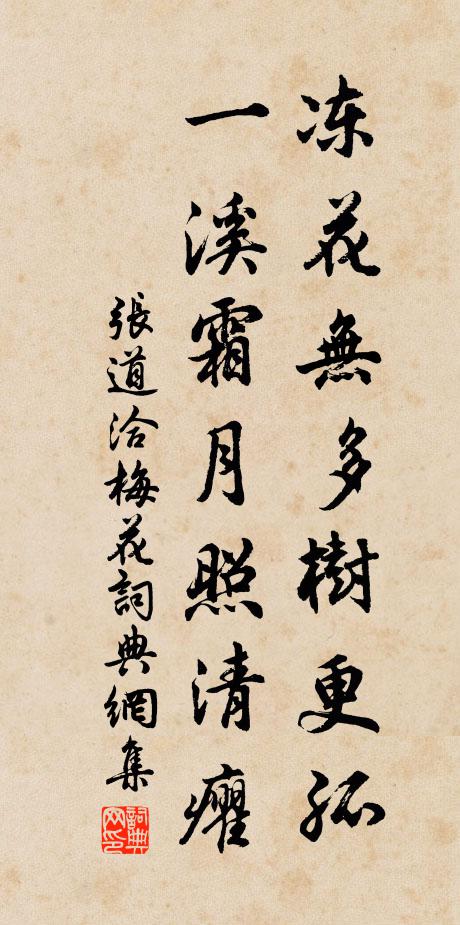 冻花無多樹更孤
一溪霜月照清癯
張道洽梅花詞典網集
詞典网印